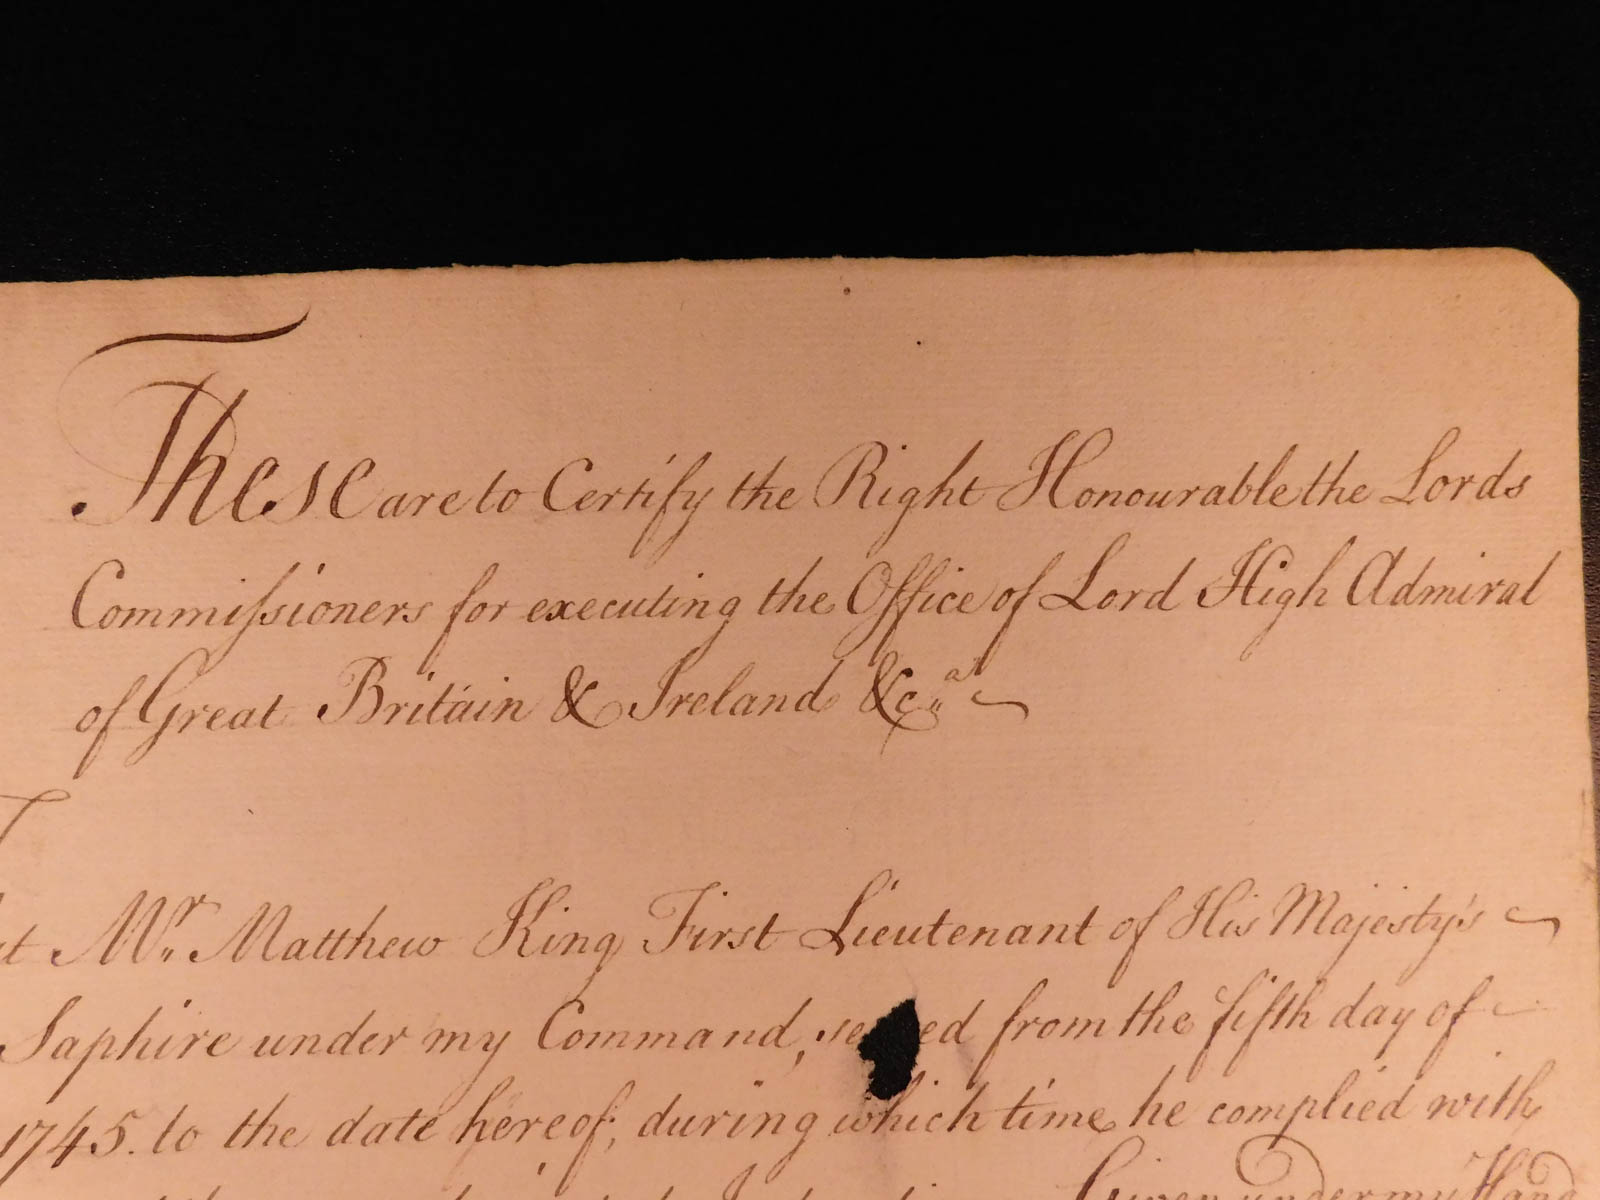 These are to Certify the Right Honourable the Lords
Commiſsioners for executing the Office of Lord High Admiral
of Great Britain & Ireland &c.a
Mr. Matthew King First Lieutenant of His Majesty's
Saphire under my Command, ed from the fifth day of
1745. to the date hereof; during which time he complied with
Given under my